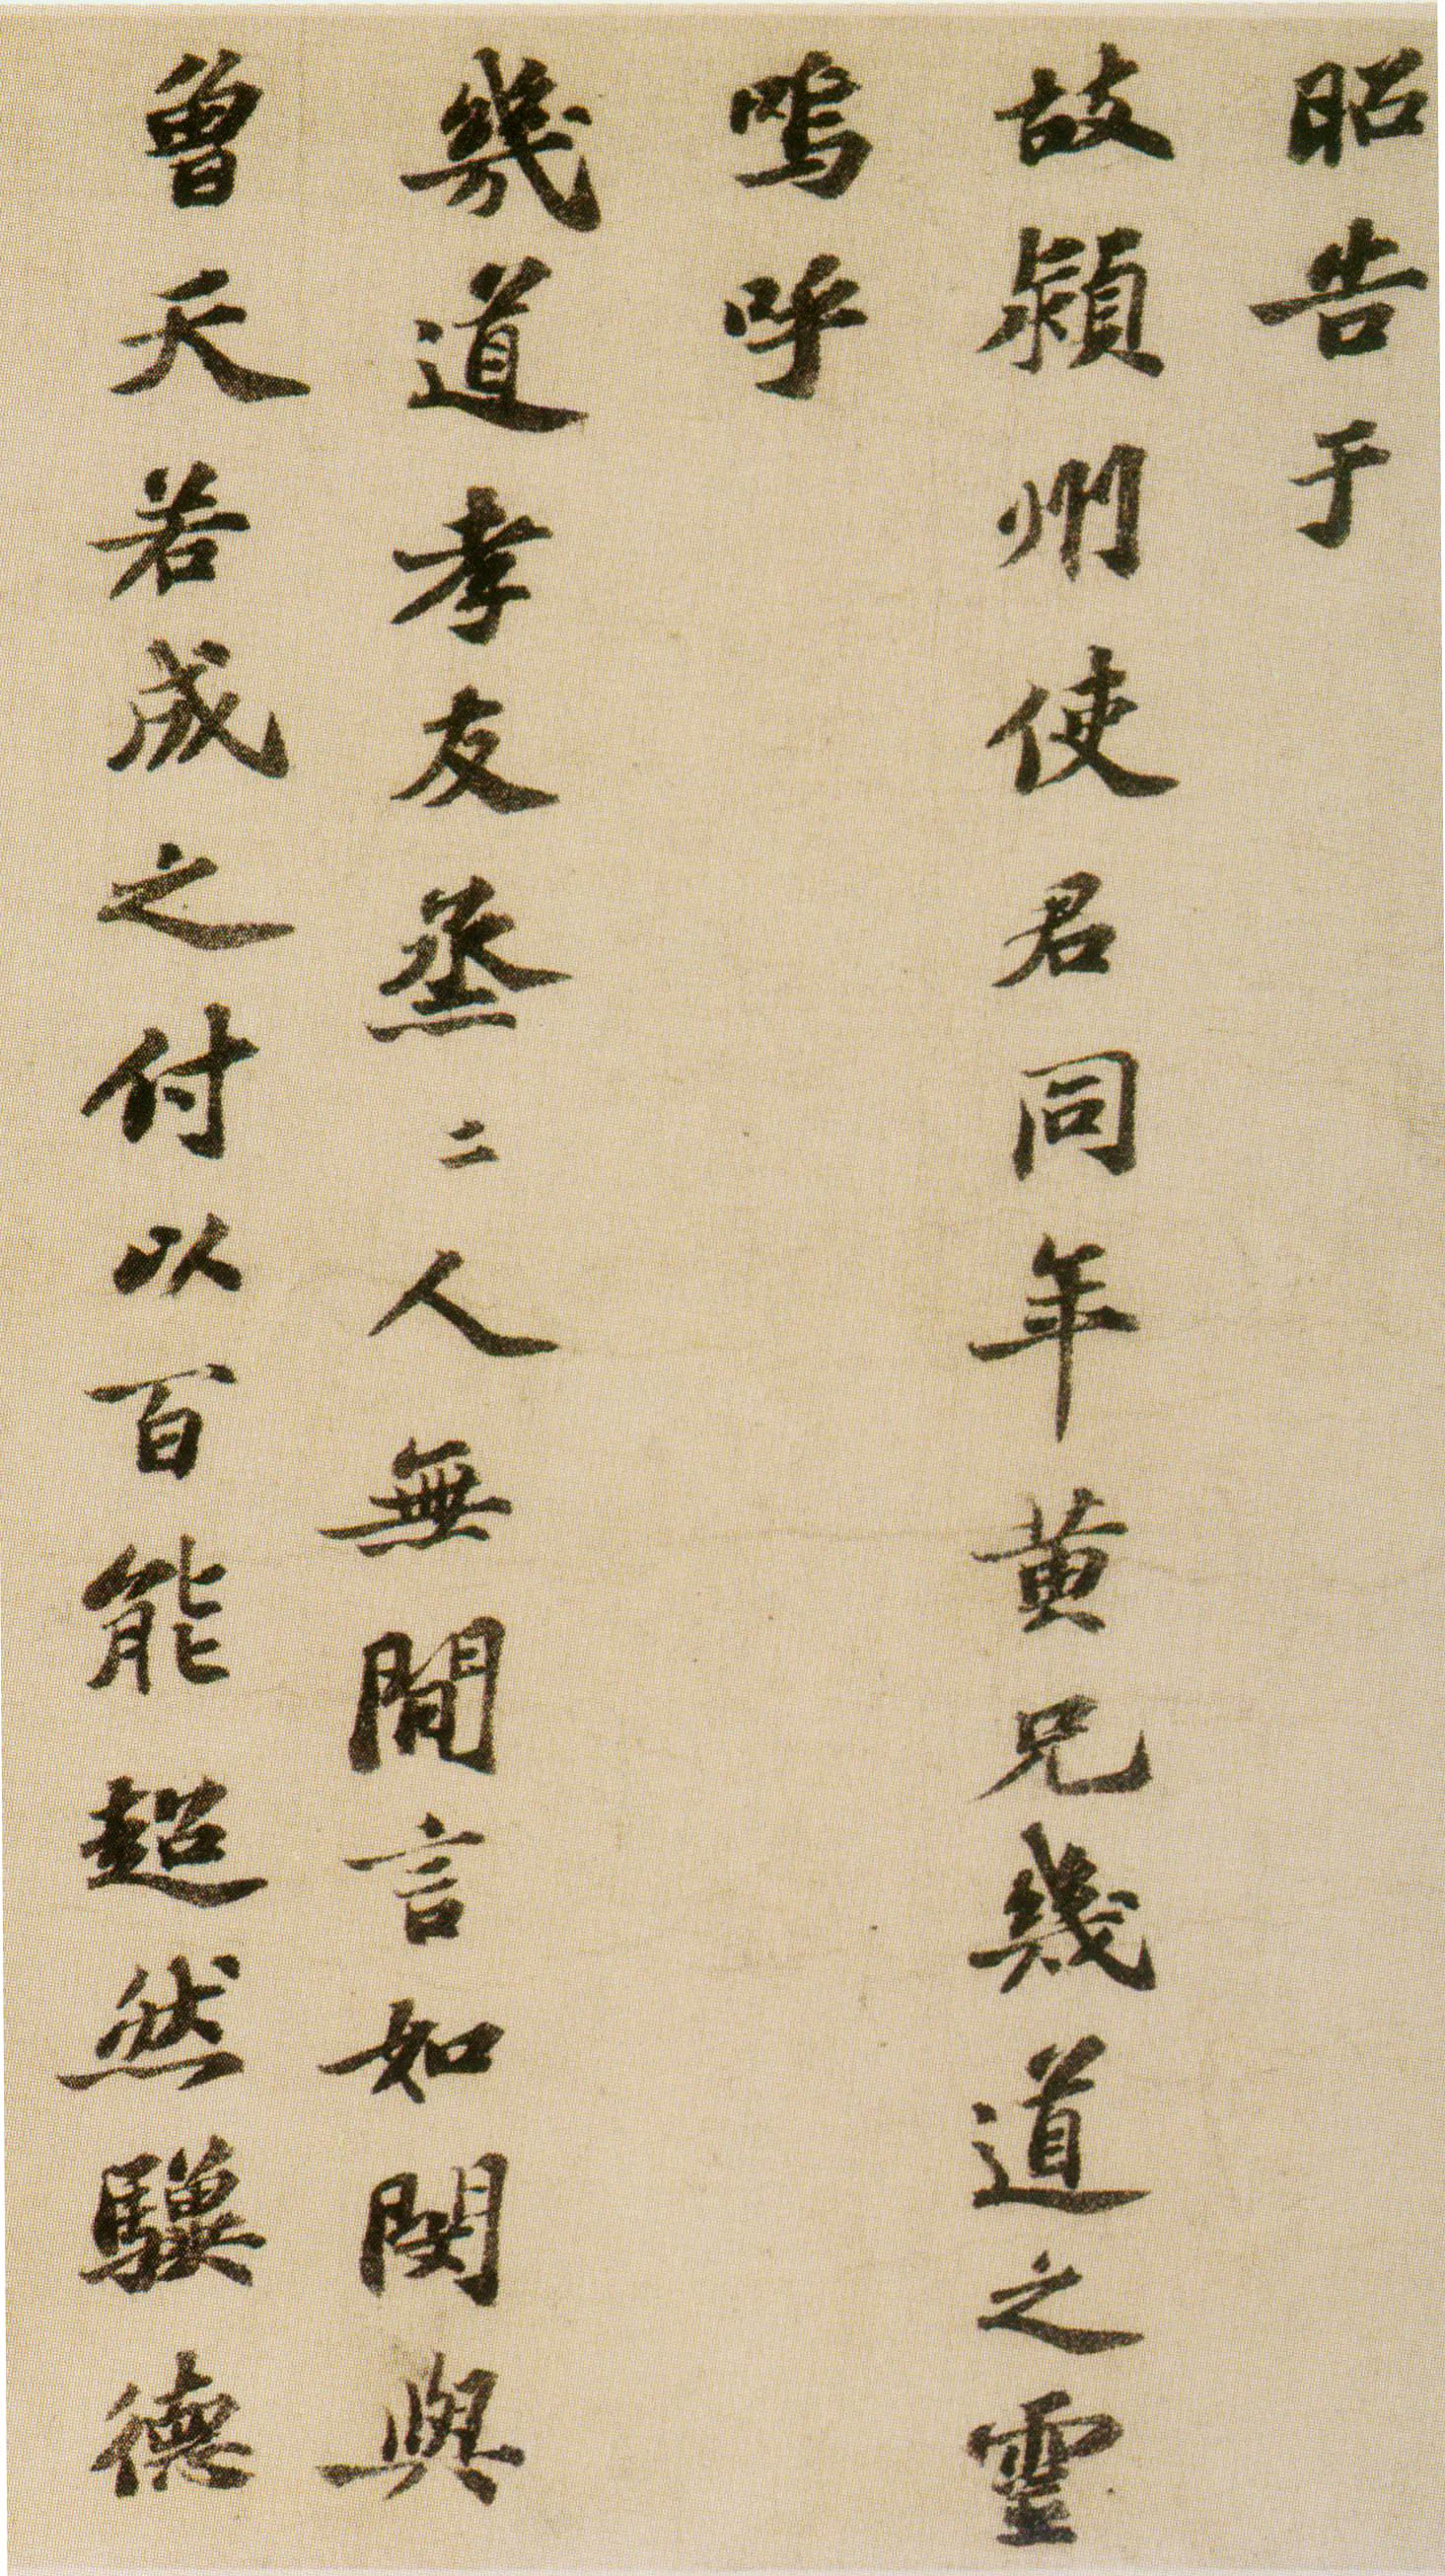 昭告于
故潁州使君同年黄兄幾道之靈
嗚呼
幾道孝友烝二人無閒言如閔與
曾天若成之付以百能超然驥德